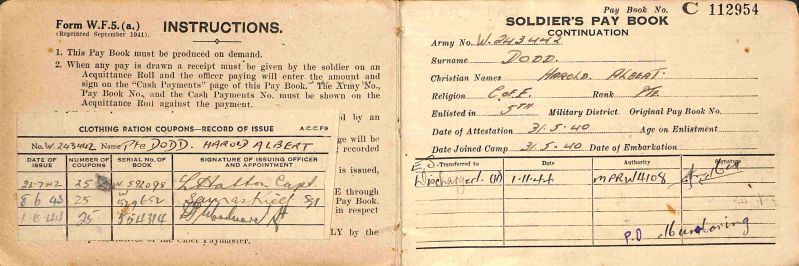 Form W.F.5.(a.)
(Reprinted September 1941).
INSTRUCTIONS.
1. This Pay Book must be produced on demand.
2. When any pay is drawn a receipt must be given by the soldier on an
Acquittance Roll and the officer paying will enter the amount
and sign on the "Cash Payments" page of this Pay Book. The Army No.,
Pay Book No., and the Cash Payments No. must be shown on the
Acquittance Roll against the payment.
d by an
ge will be
recorded
is issued,
E through
Pay Book.
in respect
LY by the
Paymaster.
CLOTHING RATION COUPONS—RECORD OF ISSUE A.C.C.F9
No. W.243442 Name Pte DODD. HAROLD ALBERT
DATE OF ISSUE NUMBER OF COUPONS SERIAL No. OF BOOK SIGNATURE OF ISSUING OFFICER AND APPOINTMENT
25 592098 Capt.
8 6 43 25 529652
25 554314
Pay Book No. C 112954
SOLDIER'S PAY BOOK
CONTINUATION
Army No. W.243442
Surname DODD.
Christian Names HAROLD ALBERT.
Religion C of E. Rank PTE
Enlisted in 5TH Military District. Original Pay Book No.
Date of Attestation 31.5.40 Age on Enlistment
Date Joined Camp 31.5.40 Date of Embarkation
Transferred to Date Authority Signature
Discharged 1.11.44 MPRW4108
P.O Mundaring